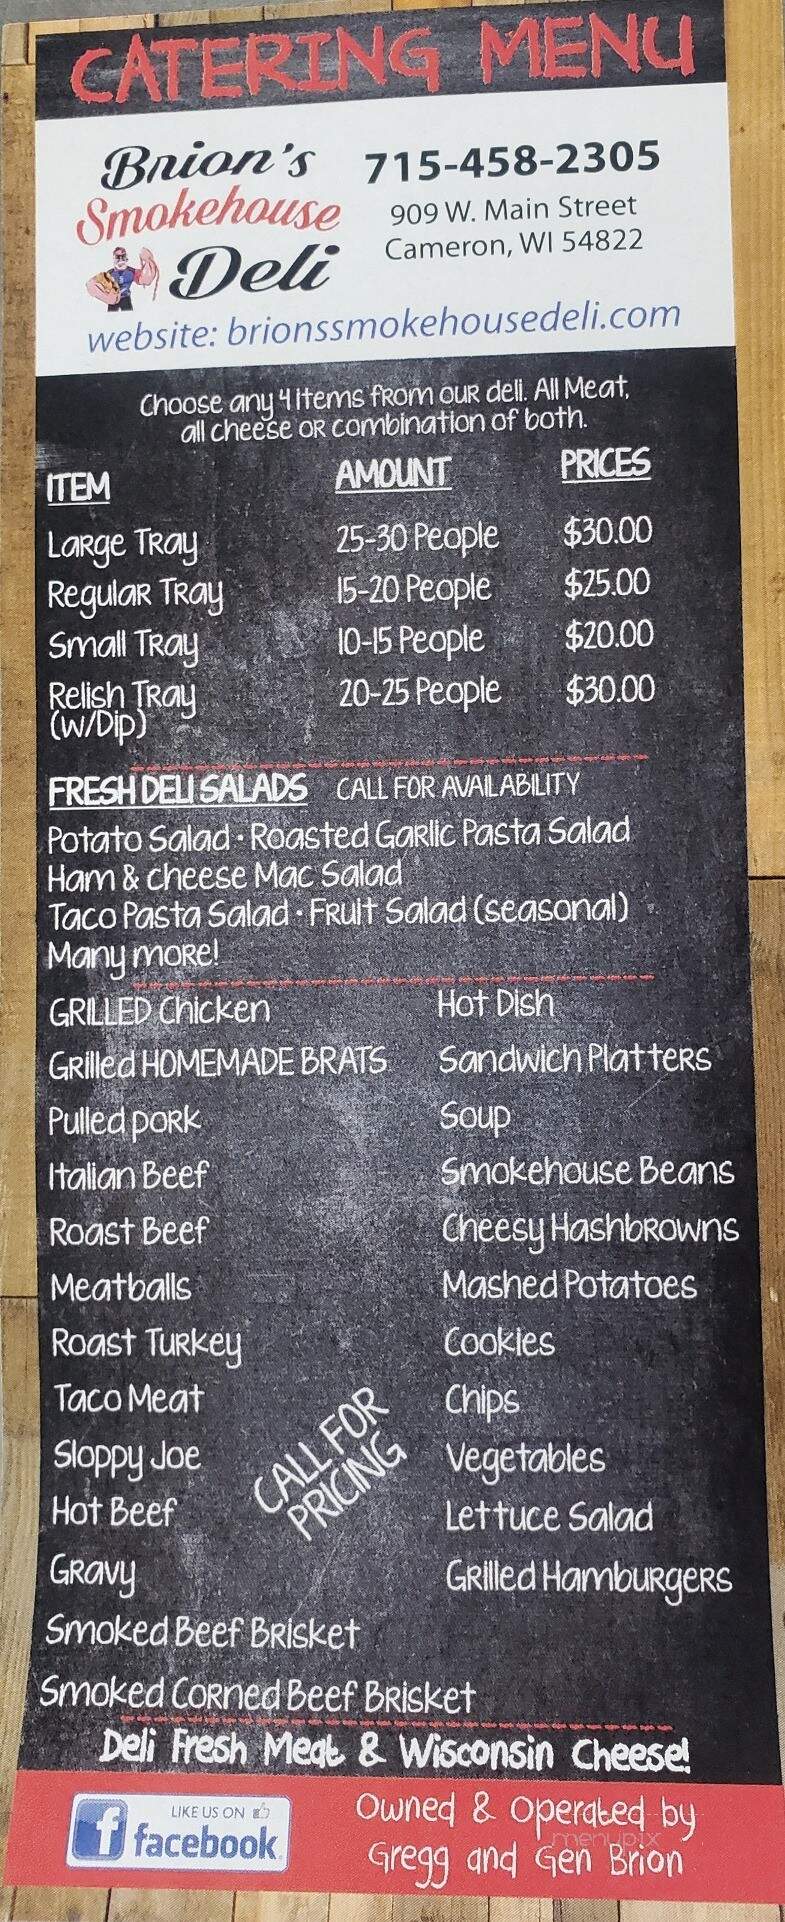 CATERING MENU
Brion's
Smokehouse
Deli
715-458-2305
909 W. Main Street
Cameron, WI 54822
website: brionssmokehousedeli.com
Choose any 4 items from our deli. All Meat,
all cheese or combination of both.
ITEM AMOUNT PRICES
Large Tray 25-30 People $30.00
Regular Tray 15-20 People $25.00
Small Tray 10-15 People $20.00
Relish Tray 20-25 People $30.00
(w/Dip)
FRESH DELI SALADS CALL FOR AVAILABILITY
Potato Salad · Roasted Garlic Pasta Salad
Ham & cheese Mac Salad
Taco Pasta Salad · Fruit Salad (seasonal)
Many more!
GRILLED Chicken
Grilled HOMEMADE BRATS
Pulled pork
Italian Beef
Roast Beef
Meatballs
Roast Turkey
Taco Meat
Sloppy Joe
Hot Beef
Gravy
Smoked Beef Brisket
Smoked Corned Beef Brisket
Hot Dish
Sandwich Platters
Soup
Smokehouse Beans
Cheesy Hashbrowns
Mashed Potatoes
Cookies
Chips
Vegetables
Lettuce Salad
Grilled Hamburgers
CALL FOR
PRICING
Deli Fresh Meat & Wisconsin Cheese!
LIKE US ON
f facebook
Owned & Operated by
Gregg and Gen Brion
menupix